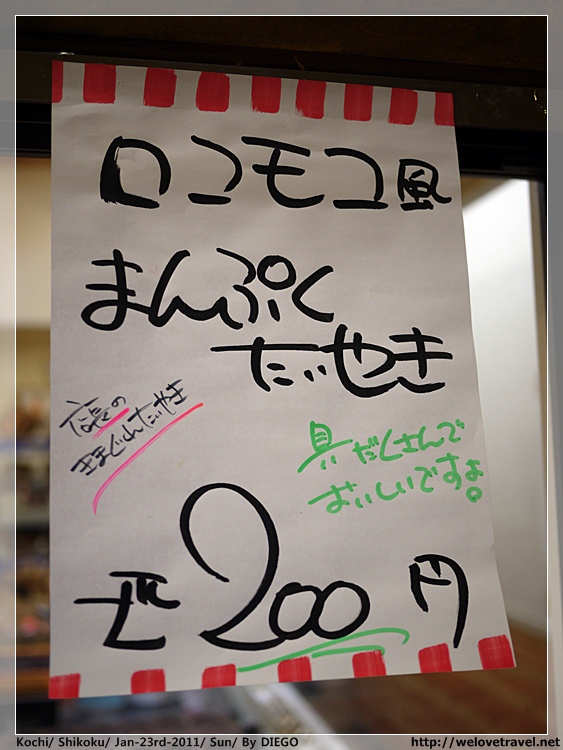 ロコモコ風
まんぷく
たいやき
店長の
きまぐれたいやき
具だくさんで
おいしいですよ。
200円
Kochi/ Shikoku/ Jan-23rd-2011/ Sun/ By DIEGO
http://welovetravel.net